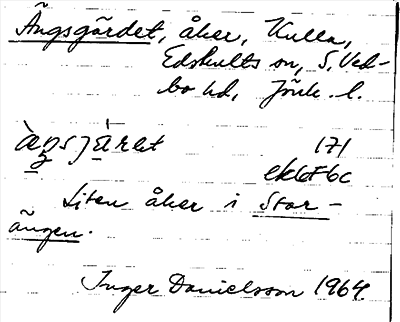 Ängsgärdet, åker, Kulla,
Edshults sn, S. Ved-
bo hd, Jönk. l.
171
ek6f6c
Liten åker i Stor-
ängen.
Inger Danielsson 1964.